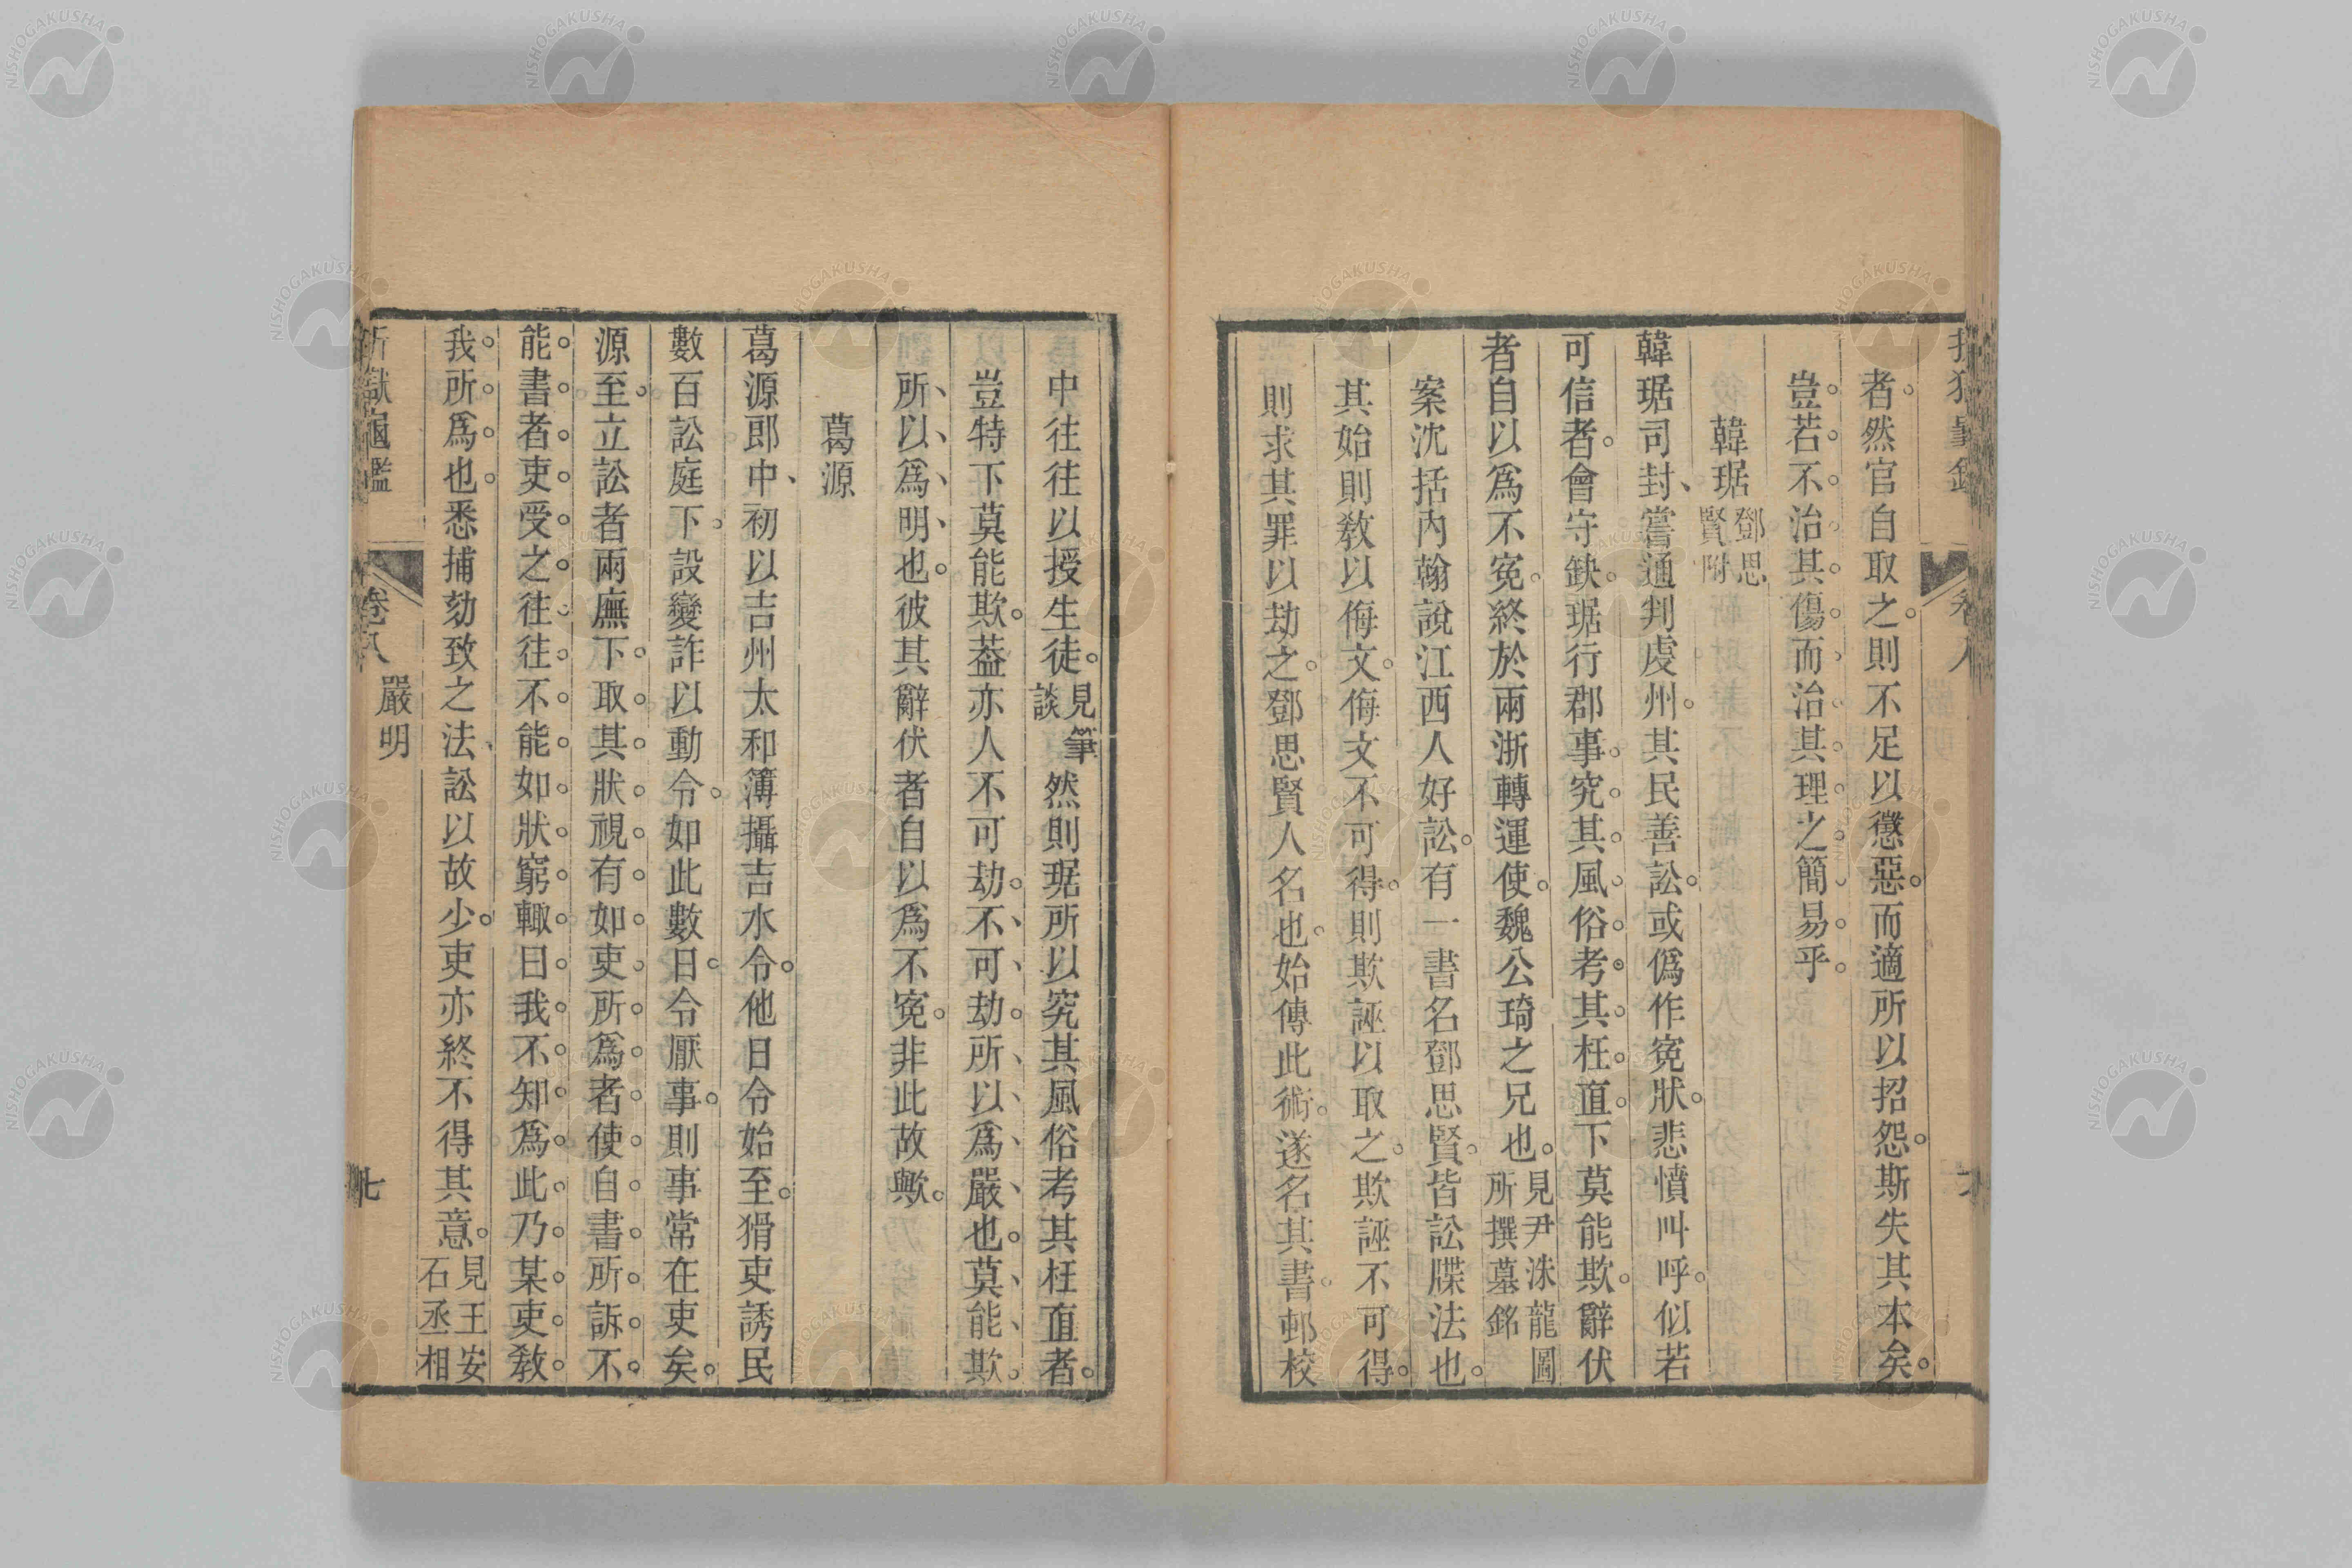 者。然官自取之。則不足以懲惡。而適所以招怨。斯失其本矣。
豈若不治其傷。而治其理之簡易乎。
韓琚 鄧思賢附
韓琚司封、嘗通判虔州。其民善訟。或僞作寃狀。悲憤叫呼。似若
可信者。會守缺。琚行郡事。究其風俗。考其枉直。下莫能欺。辭伏
者自以爲不寃。終於兩浙轉運使。魏公琦之兄也。見尹洙龍圖所撰墓銘
案沈括內翰說江西人好訟。有一書名鄧思賢。皆訟牒法也。
其始則教以侮文。侮文不可得。則欺誣以取之。欺誣不可得。
則求其罪以劫之。鄧思賢人名也。始傳此術。遂名其書。邨校
中往往以授生徒。見筆談 然則琚所以究其風俗考其枉直者。
豈特下莫能欺。葢亦人不可劫。不可劫。所以爲嚴也。莫能欺。
所以爲明也。彼其辭伏者自以爲不寃。非此故歟。
葛源
葛源郎中、初以吉州太和簿攝吉水令。他日令始至。猾吏誘民
數百訟庭下。設變詐以動令。如此數日。令厭事。則事常在吏矣。
源至。立訟者兩廡下。取其狀視。有如吏所爲者。使自書所訴。不
能書者。吏受之。往往不能如狀。窮輒曰。我不知爲此。乃某吏教
我所爲也。悉捕劾致之法、訟以故少。吏亦終不得其意。見王安石丞相
卷八
嚴明
七